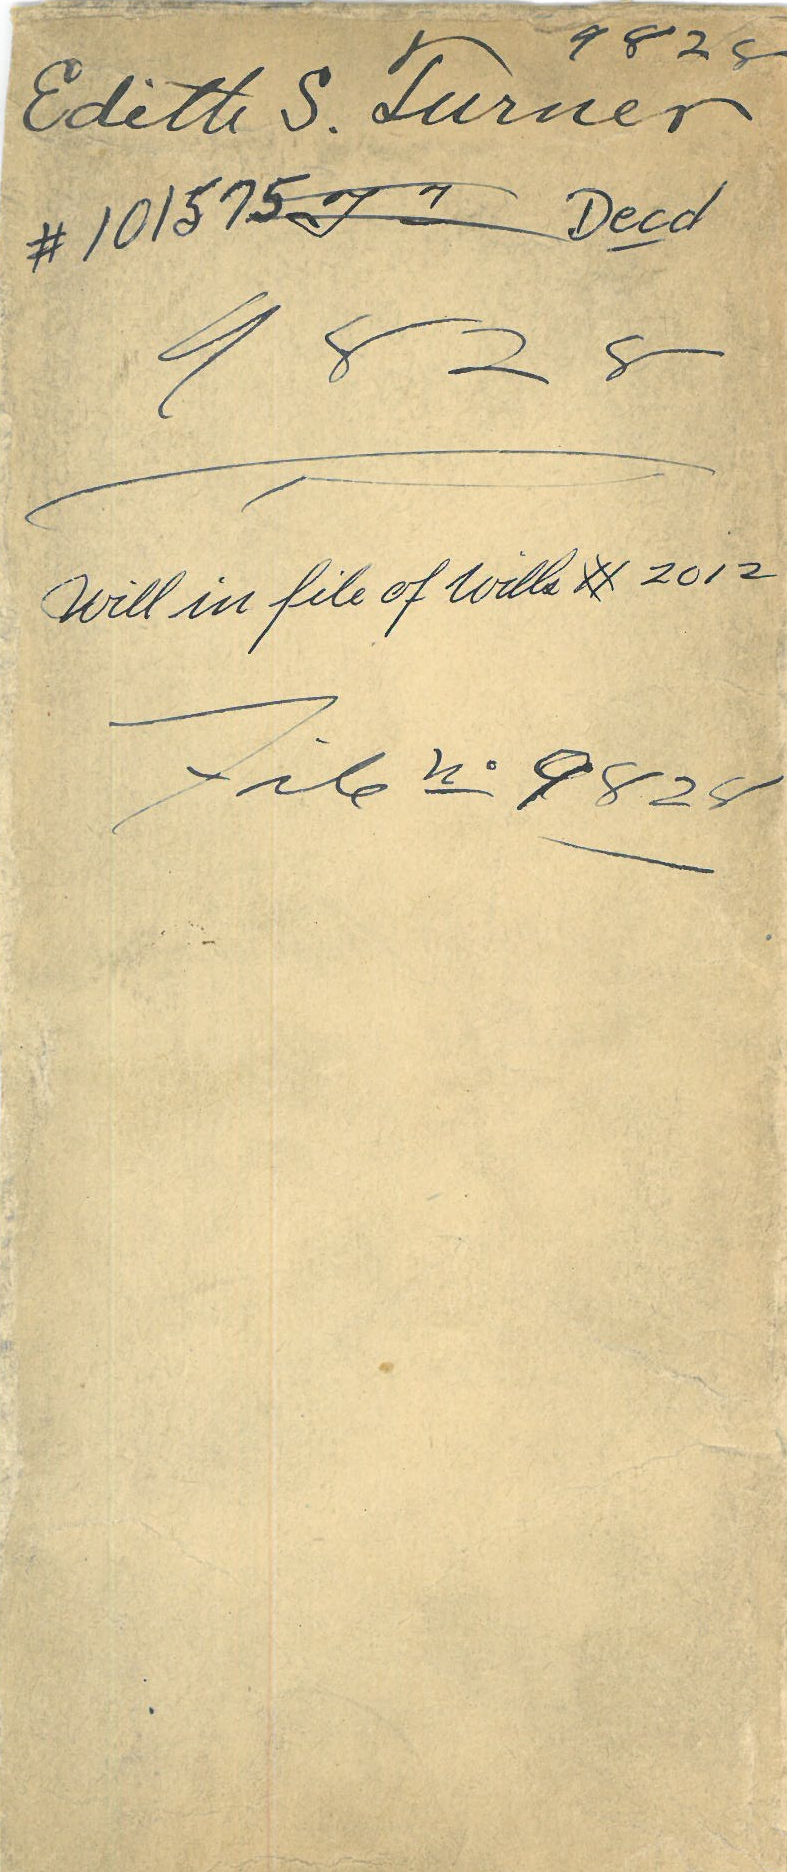 9828
Edith S. Turner
#101575 Decd
9828
Will in file of Wills # 2012
File No 9828